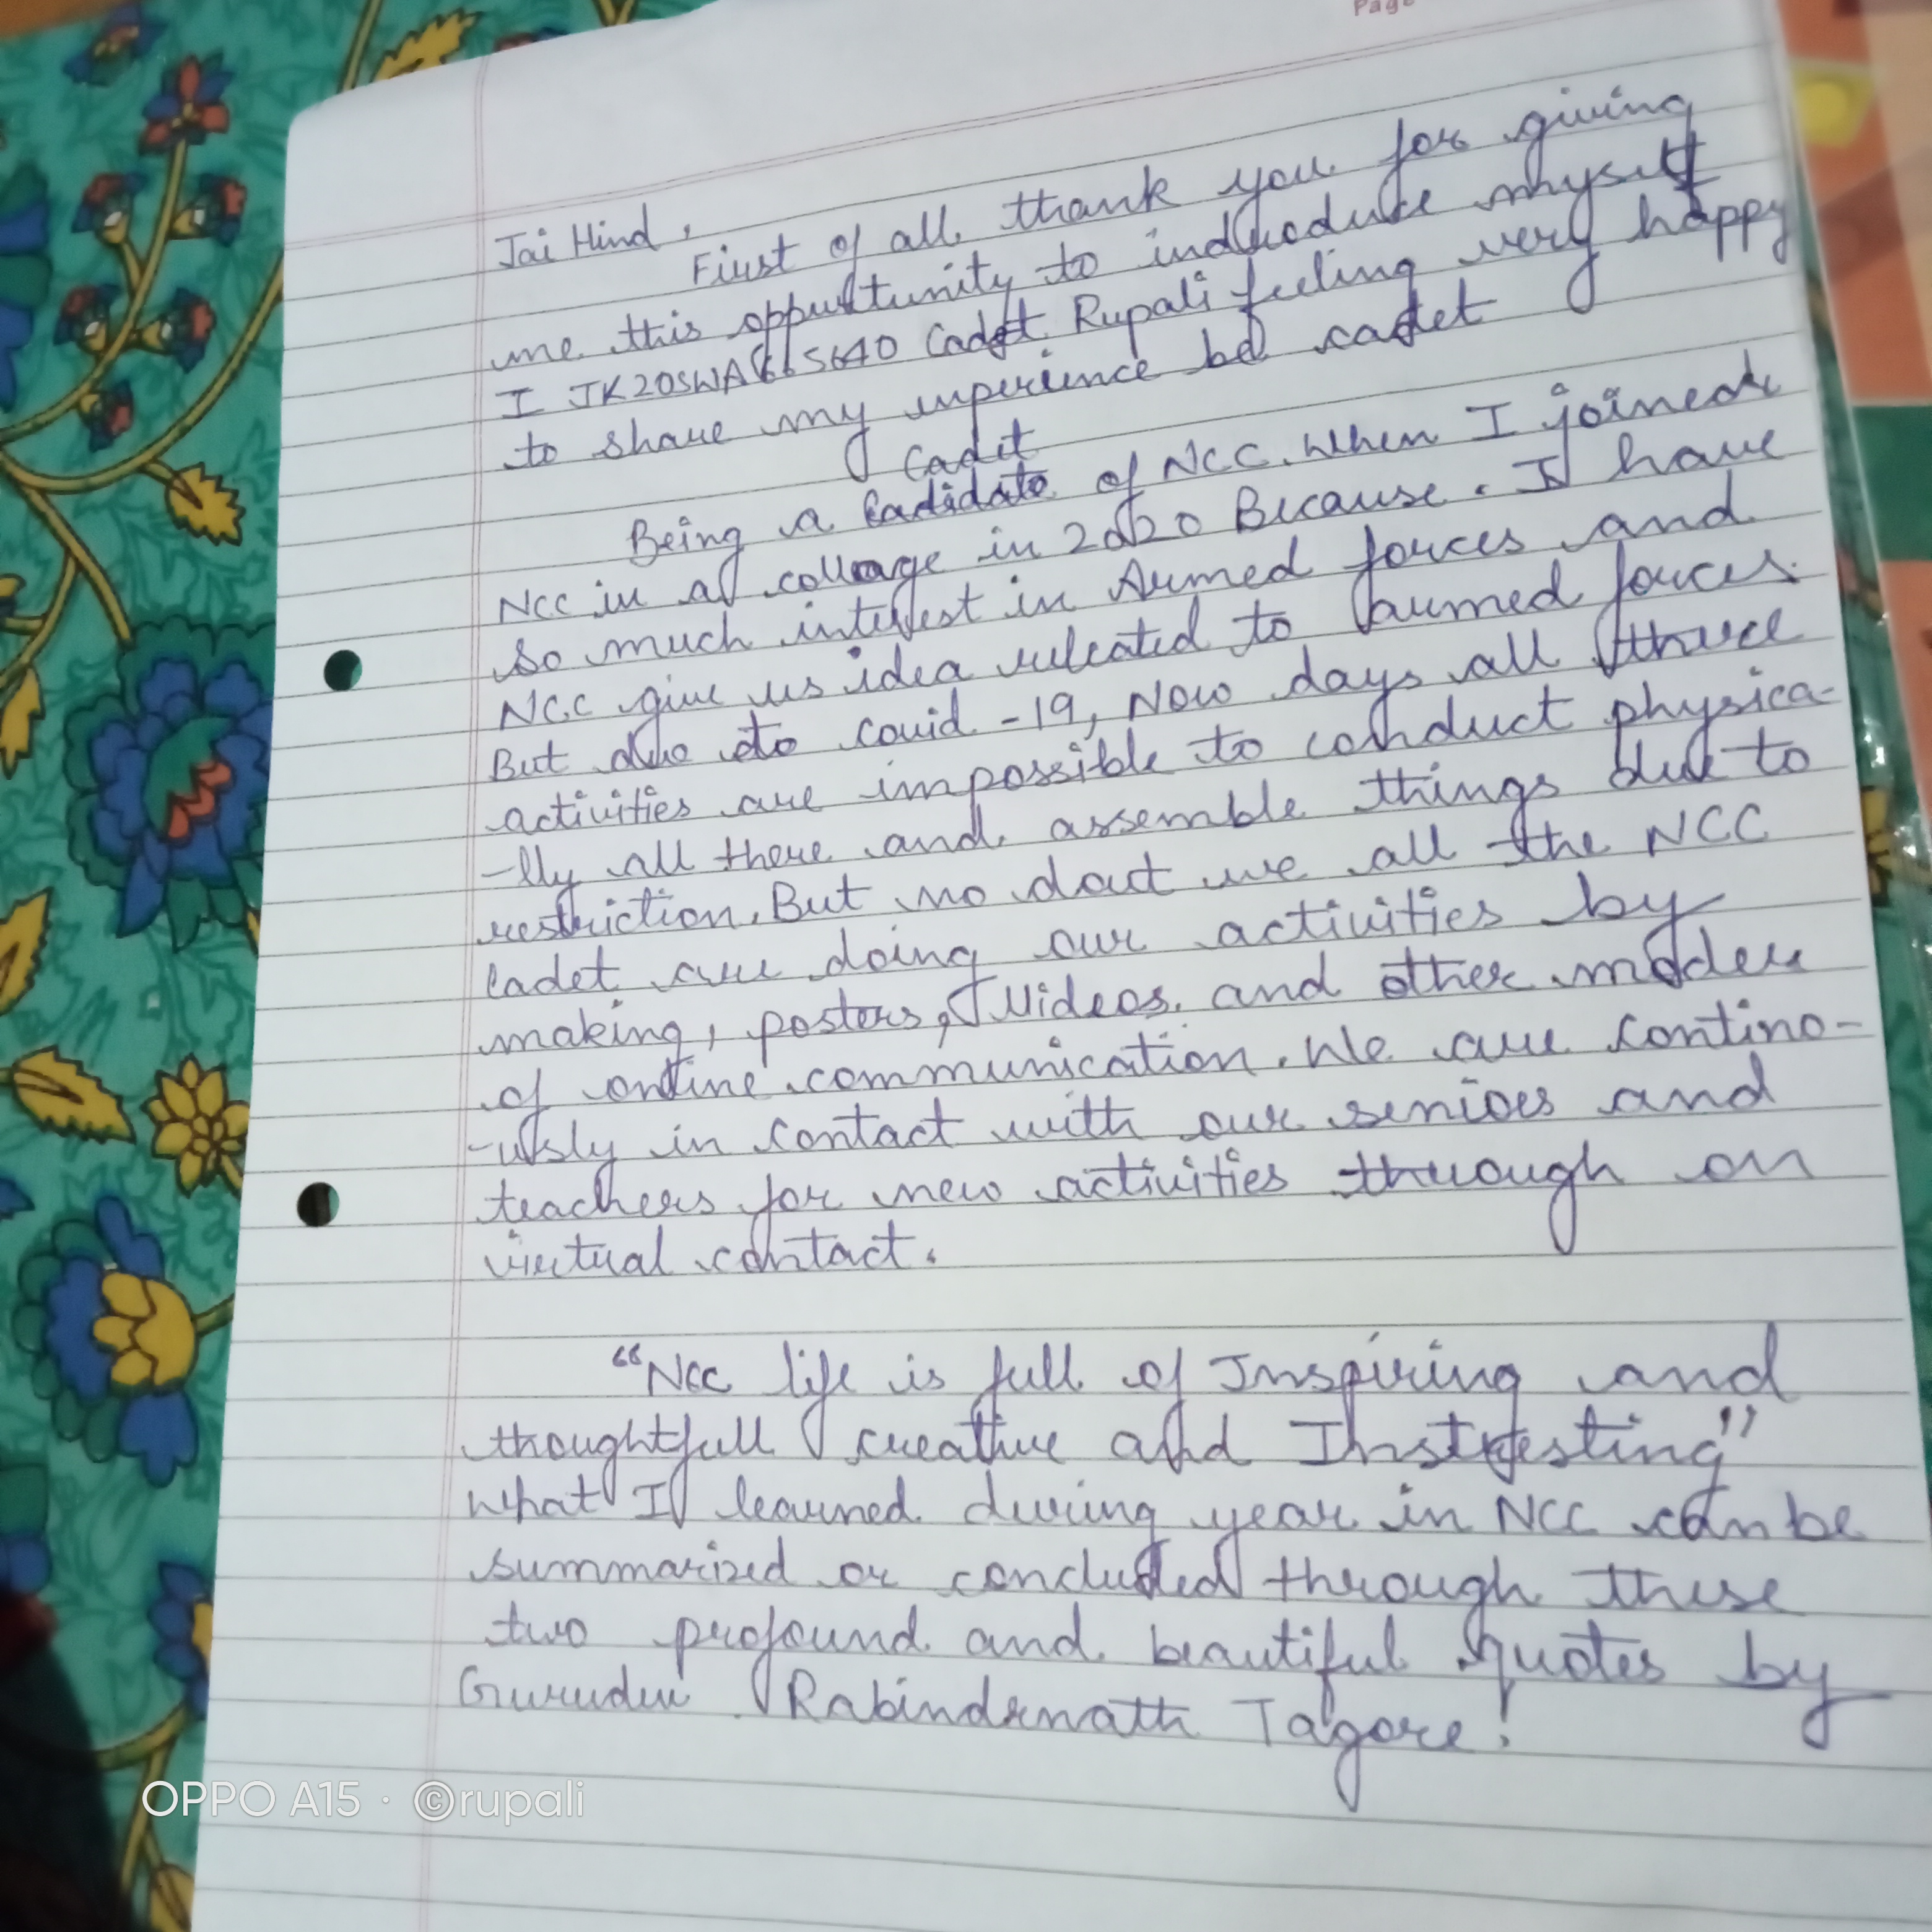 Page
Jai Hind,
First of all, thank you for giving
me this oppurtunity to indroduce myself
I JK20SWA665640 Cadet Rupali feeling very happy
to share my experience be cadet
Cadit
Being a Cadidate of NCC. When I joined
NCC in a collage in 2020 Because. I have
so much interest in Armed forces and
NCC give us idea releated to armed forces.
But due to covid -19, Now days all these
activities are impossible to conduct physica-
-lly all there and assemble things due to
restriction. But no dout we all the NCC
cadet are doing our activities by
making, posters, Videos. and other moder
of online communication. We are contino-
-usly in contact with our seniors and
teachers for new activities through on
virtual contact.
"NCC life is full of Inspiring and
thoughtfull creative and Instresting"
what I learned during year in NCC can be
summarized or concluded through these
two profound and beautiful quotes by
Gurudev Rabindrnath Tagore!
OPPO A15 · ©rupali